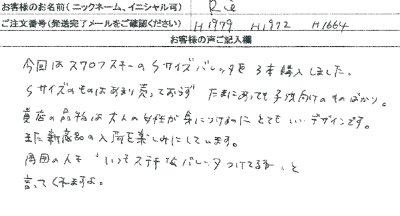 お客様のお名前（ニックネーム、イニシャル可） Rie
ご注文番号（発送完了メールをご確認ください） H1979 H1972 H1664
お客様の声ご記入欄
今回はスワロフスキーのSサイズバレッタを3本購入しました。
Sサイズのものはあまり売っておらず たまにあっても子供向けのものばかり。
貴店の品物は大人の女性が身につけるのにとてもいいデザインです。
また新商品の入荷を楽しみにしています。
周囲の人も "いつもステキなバレッタつけてるネ" と
言ってくれますよ。